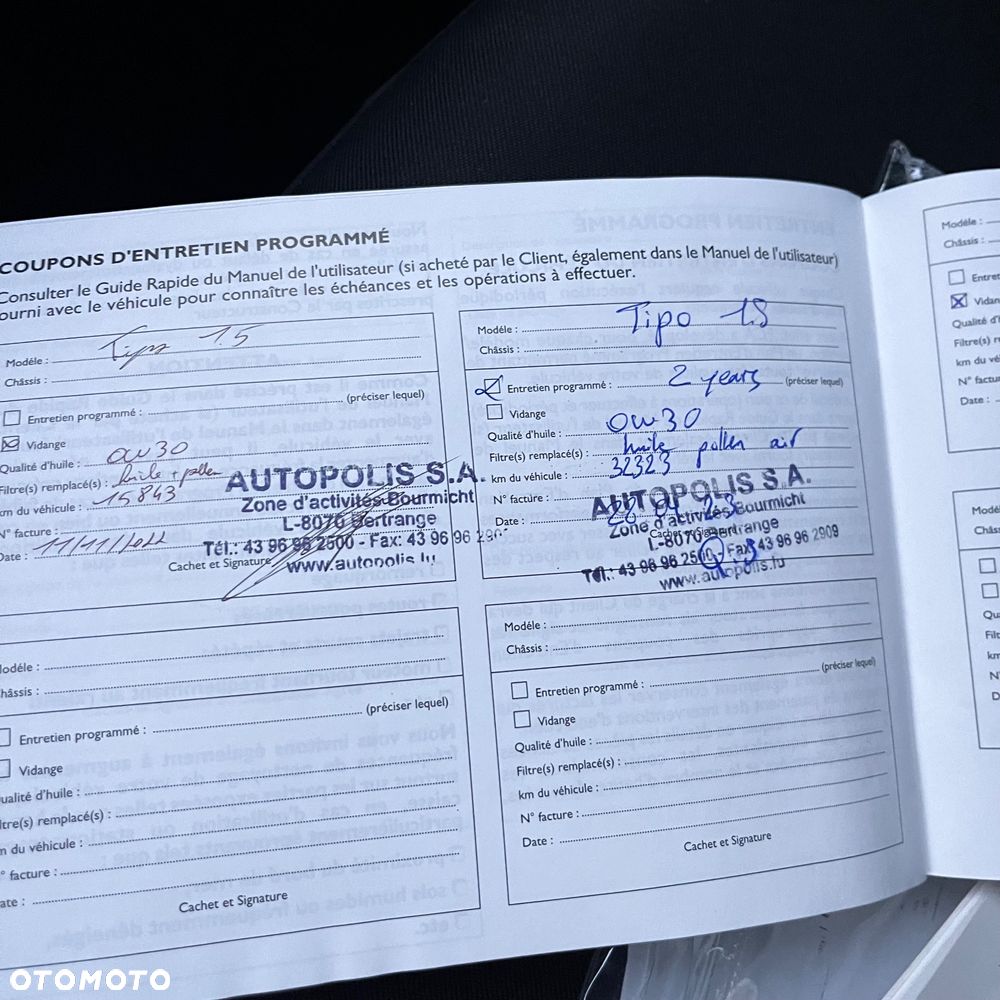 COUPONS D'ENTRETIEN PROGRAMMÉ
Consulter le Guide Rapide du Manuel de l'utilisateur (si acheté par le Client, également dans le Manuel de l'utilisateur)
ourni avec le véhicule pour connaître les échéances et les opérations à effectuer.
Modéle : Tipo 1.5
Châssis :
Entretien programmé : (préciser lequel)
Vidange
Qualité d'huile : 0W30
Filtre(s) remplacé(s) : huile + pollen
km du véhicule : 15843
N° facture :
Date : 11/11/2022
Cachet et Signature
AUTOPOLIS S.A.
Zone d'activités Bourmicht
L-8070 Bertrange
Tél.: 43 96 96 2500 - Fax: 43 96 96 290
www.autopolis.lu
Modéle : Tipo 1.5
Châssis :
Entretien programmé : 2 years (préciser lequel)
Vidange
Qualité d'huile : 0W30
Filtre(s) remplacé(s) : huile pollen air
km du véhicule : 32323
N° facture :
Date :
Cachet et Signature
AUTOPOLIS S.A.
Zone d'activités Bourmicht
L-8070 Bertrange
Tél.: 43 96 96 2500 - Fax: 43 96 96 2909
www.autopolis.lu
odéle :
hâssis :
Entretien programmé : (préciser lequel)
Vidange
ualité d'huile :
ltre(s) remplacé(s) :
m du véhicule :
° facture :
ate :
Cachet et Signature
Modéle :
Châssis :
Entretien programmé : (préciser lequel)
Vidange
Qualité d'huile :
Filtre(s) remplacé(s) :
km du véhicule :
N° facture :
Date :
Cachet et Signature
Modéle :
Châssis :
Entret
Vidan
Qualité d'
Filtre(s) r
km du vé
N° factu
Date :
Modé
Châss
Qu
Filt
km
N
D
OTOMOTO